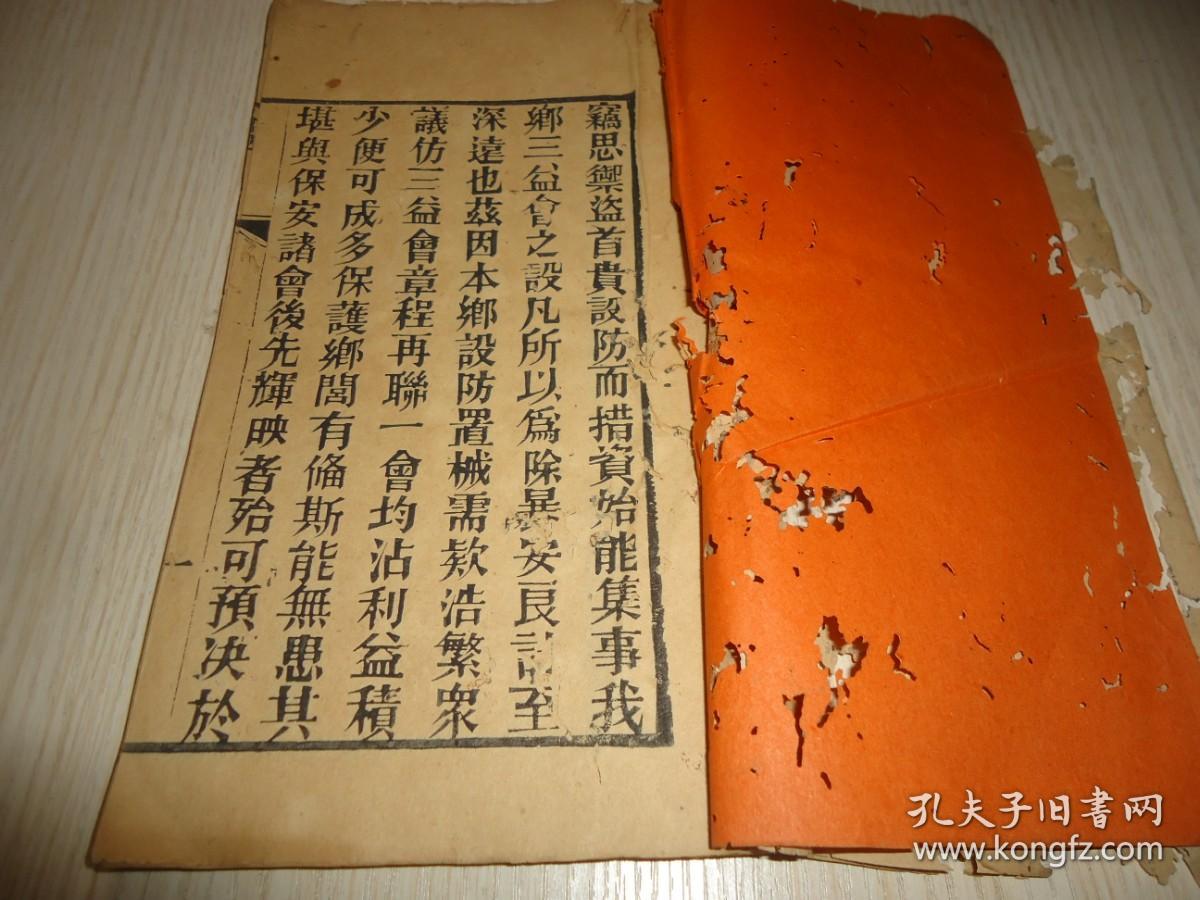 竊思禦盜首貴設防而措資始能集事我
鄉三益會之設凡所以爲除暴安良計至
深遠也茲因本鄉設防置械需欵浩繁衆
議仿三益會章程再聯一會均沾利益積
少便可成多保護鄉閭有俻斯能無患其
堪與保安諸會後先輝映者殆可預决於
孔夫子旧书网
www.kongfz.com